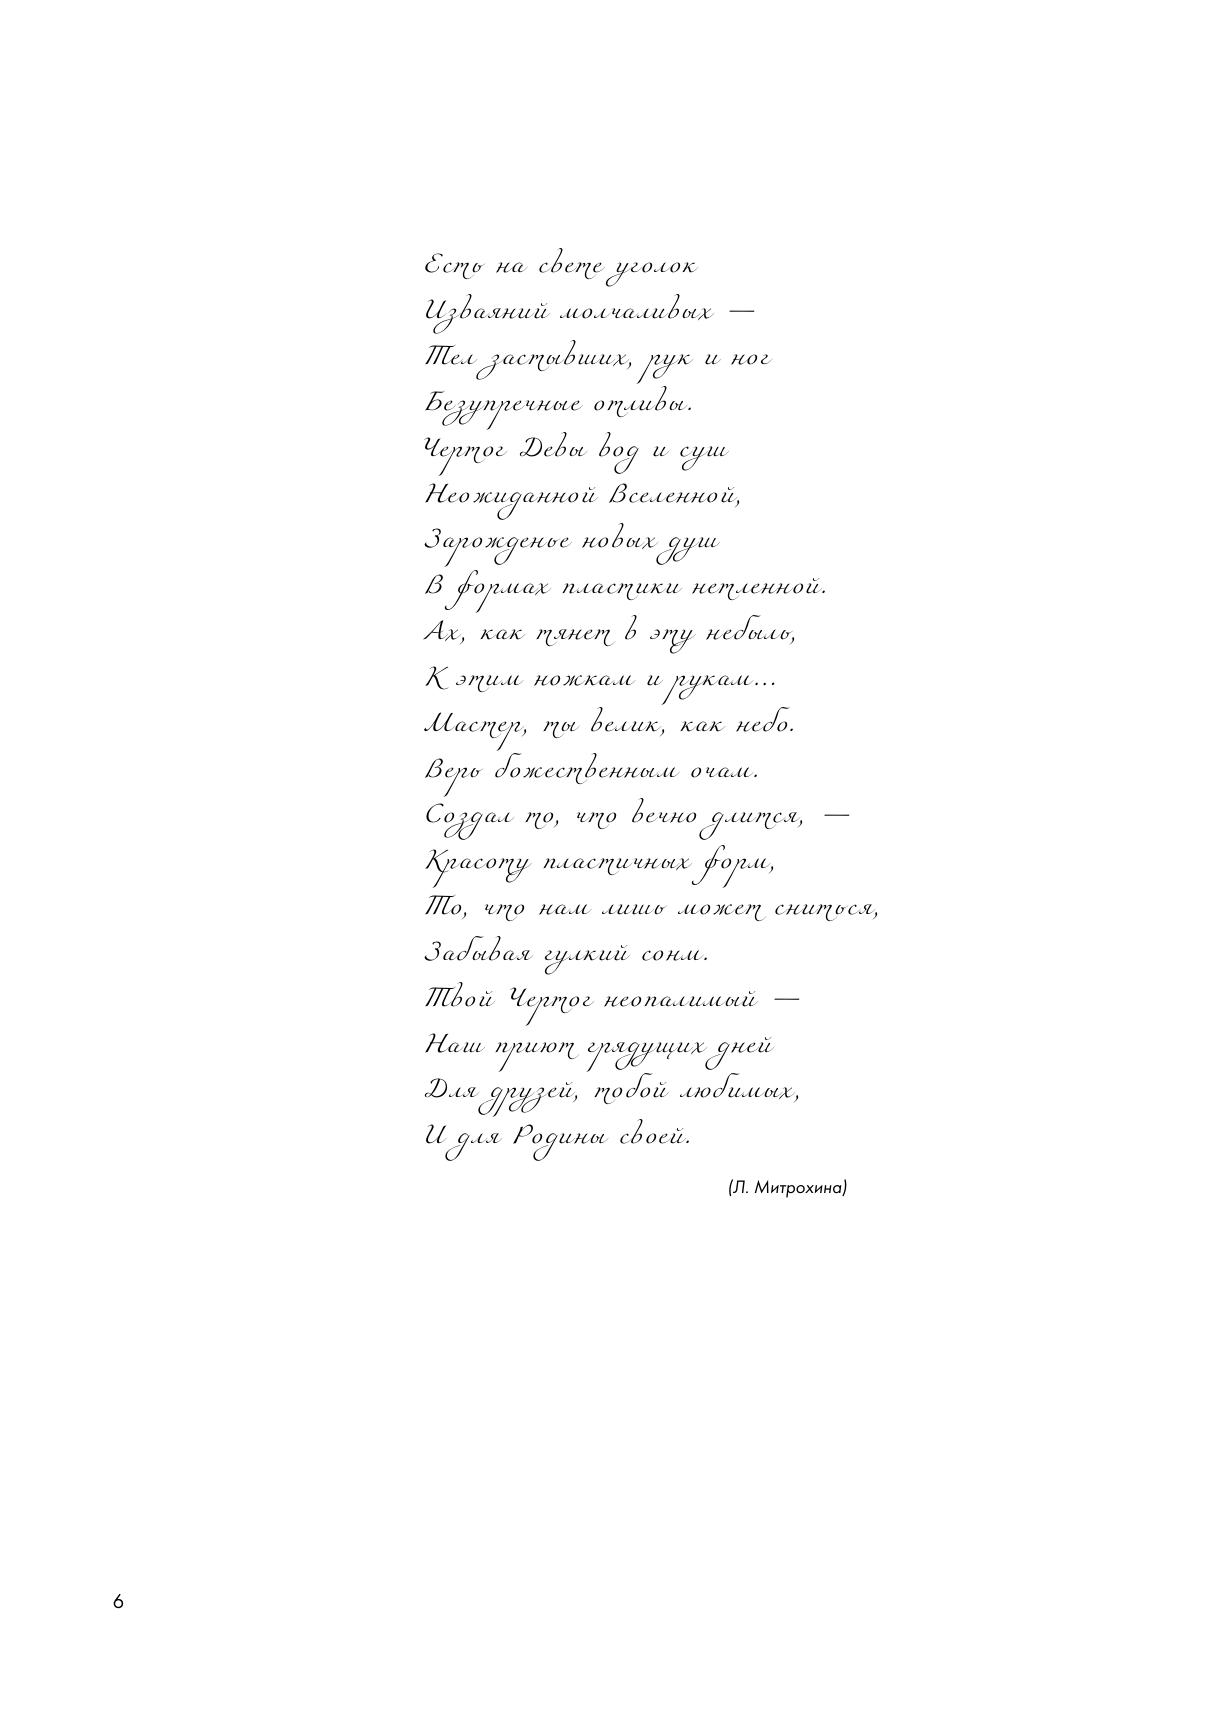 Есть на свете уголок
Изваяний молчаливых —
Тел застывших, рук и ног
Безупречные отливы.
Чертог Девы вод и суш
Неожиданной Вселенной,
Зарожденье новых душ
В формах пластики нетленной.
Ах, как тянет в эту небыль,
К этим ножкам и рукам...
Мастер, ты велик, как небо.
Верь божественным очам.
Создал то, что вечно длится, —
Красоту пластичных форм,
То, что нам лишь может сниться,
Забывая гулкий сонм.
Твой Чертог неопалимый —
Наш приют грядущих дней
Для друзей, тобой любимых,
И для Родины своей.
(Л. Митрохина)
6